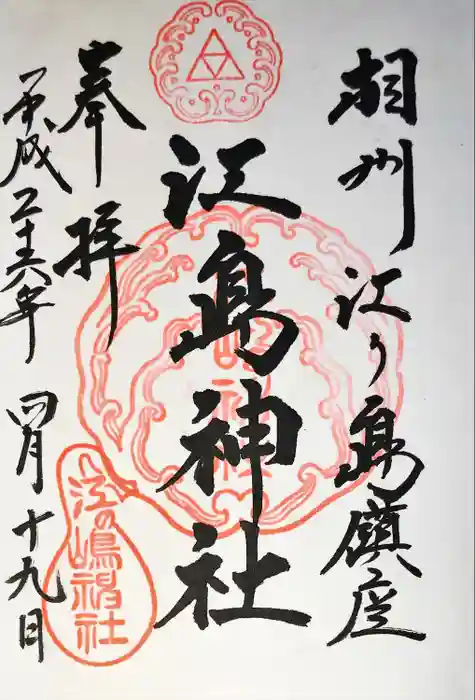 相州江り島鎮座
江島神社
奉拝
平成二十六年四月十九日
江の嶋神社